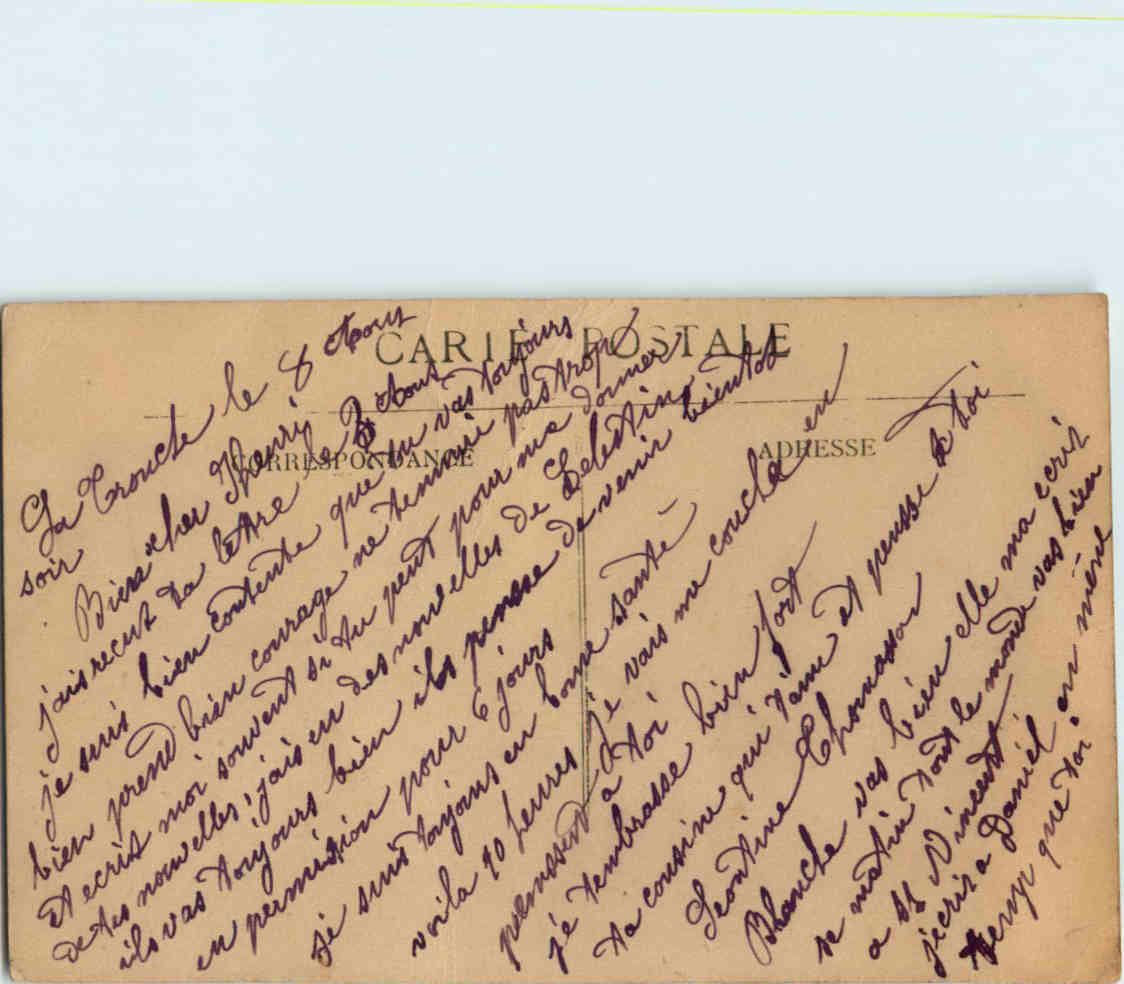 CARTE POSTALE
CORRESPONDANCE
ADRESSE
La Tronche le 8 Aout
soir
Bien cher Henri
jais recut ta lettre le 3 Aout
je suis bien contente que tu vas toujours
bien prend bien courage ne tennuie pas trop
et ecrit moi souvent si tu peut pour me donner
de tes nouvelles, jais eu des nouvelles de Celestin
ils vas toujours bien ils pensse de venir bientot
en permission pour 6 jours
je suis toujours en bonne santé
voila 10 heures je vais me couché en
penssent a toi
je tembrasse bien fort
ta cousine qui t'aime et pensse a toi
Leontine Thomasson
Blanche vas bien elle ma ecrit
se matin tout le monde vas bien
a St Vincent
jecris a Daniel en même
temp que toi